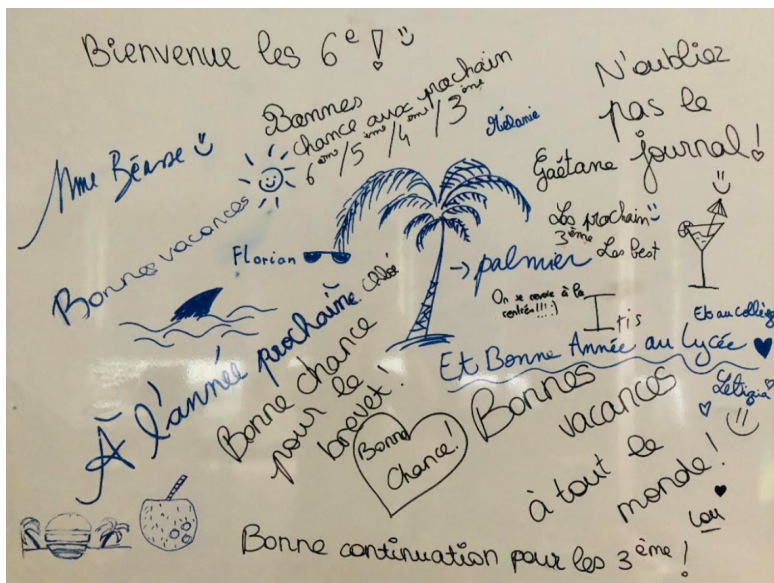 Bienvenue les 6e !
Bonnes
chance aux prochain
6ème/5ème/4ème/3ème
Mélanie
N'oubliez
pas le
journal!
Gaëtane
Mme Béasse
Bonnes vacances
Florian
Les prochain
3ème Les best
→ palmier
On se revoie à la
rentrée!!! :)
Iris
Et au collège
Et Bonne Année au Lycée
Letizia
À l'année prochaine
chloé
Bonne chance
pour le
brevet!
Bonne
Chance!
Bonnes
vacances
à tout le
monde!
Lou
Bonne continuation pour les 3ème !